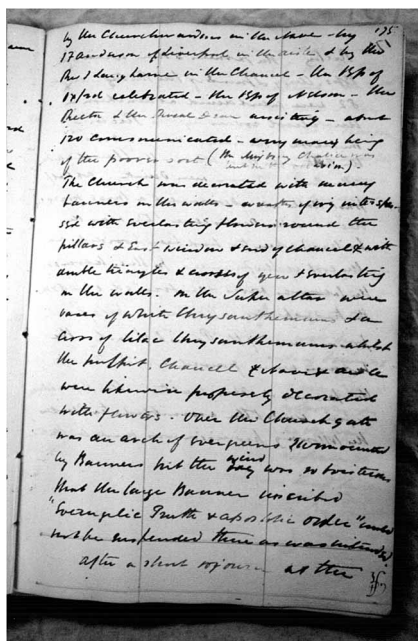 175
by the Churchwardens in the Nave - by
Anderson of Liverpool in the aisle & by the
Rev J Langhorne in the Chancel - the Bp of
Oxford celebrated - the Bp of Nelson - the
Rector & the Rural Dean assisting - about
120 communicated - very many being
of the poorer sort (the Chalice was
The Church was decorated with many
banners on the walls - wreaths of ivy intersper-
sed with everlasting flowers round the
pillars & East Window & end of Chancel & with
double triangles & crosses of yew & everlasting
on the walls. On the Super altar were
vases of white Chrysanthemums & a
cross of lilac Chrysanthemums whilst
the pulpit, Chancel & Nave & aisle
were likewise properly decorated
with flowers. Over the Church gate
was an arch of evergreens surmounted
by Banners but the wind day was so boisterous
that the large Banner inscribed
"Evangelic Truth & apostolic order" could
not be suspended there as was intended.
after a short at the